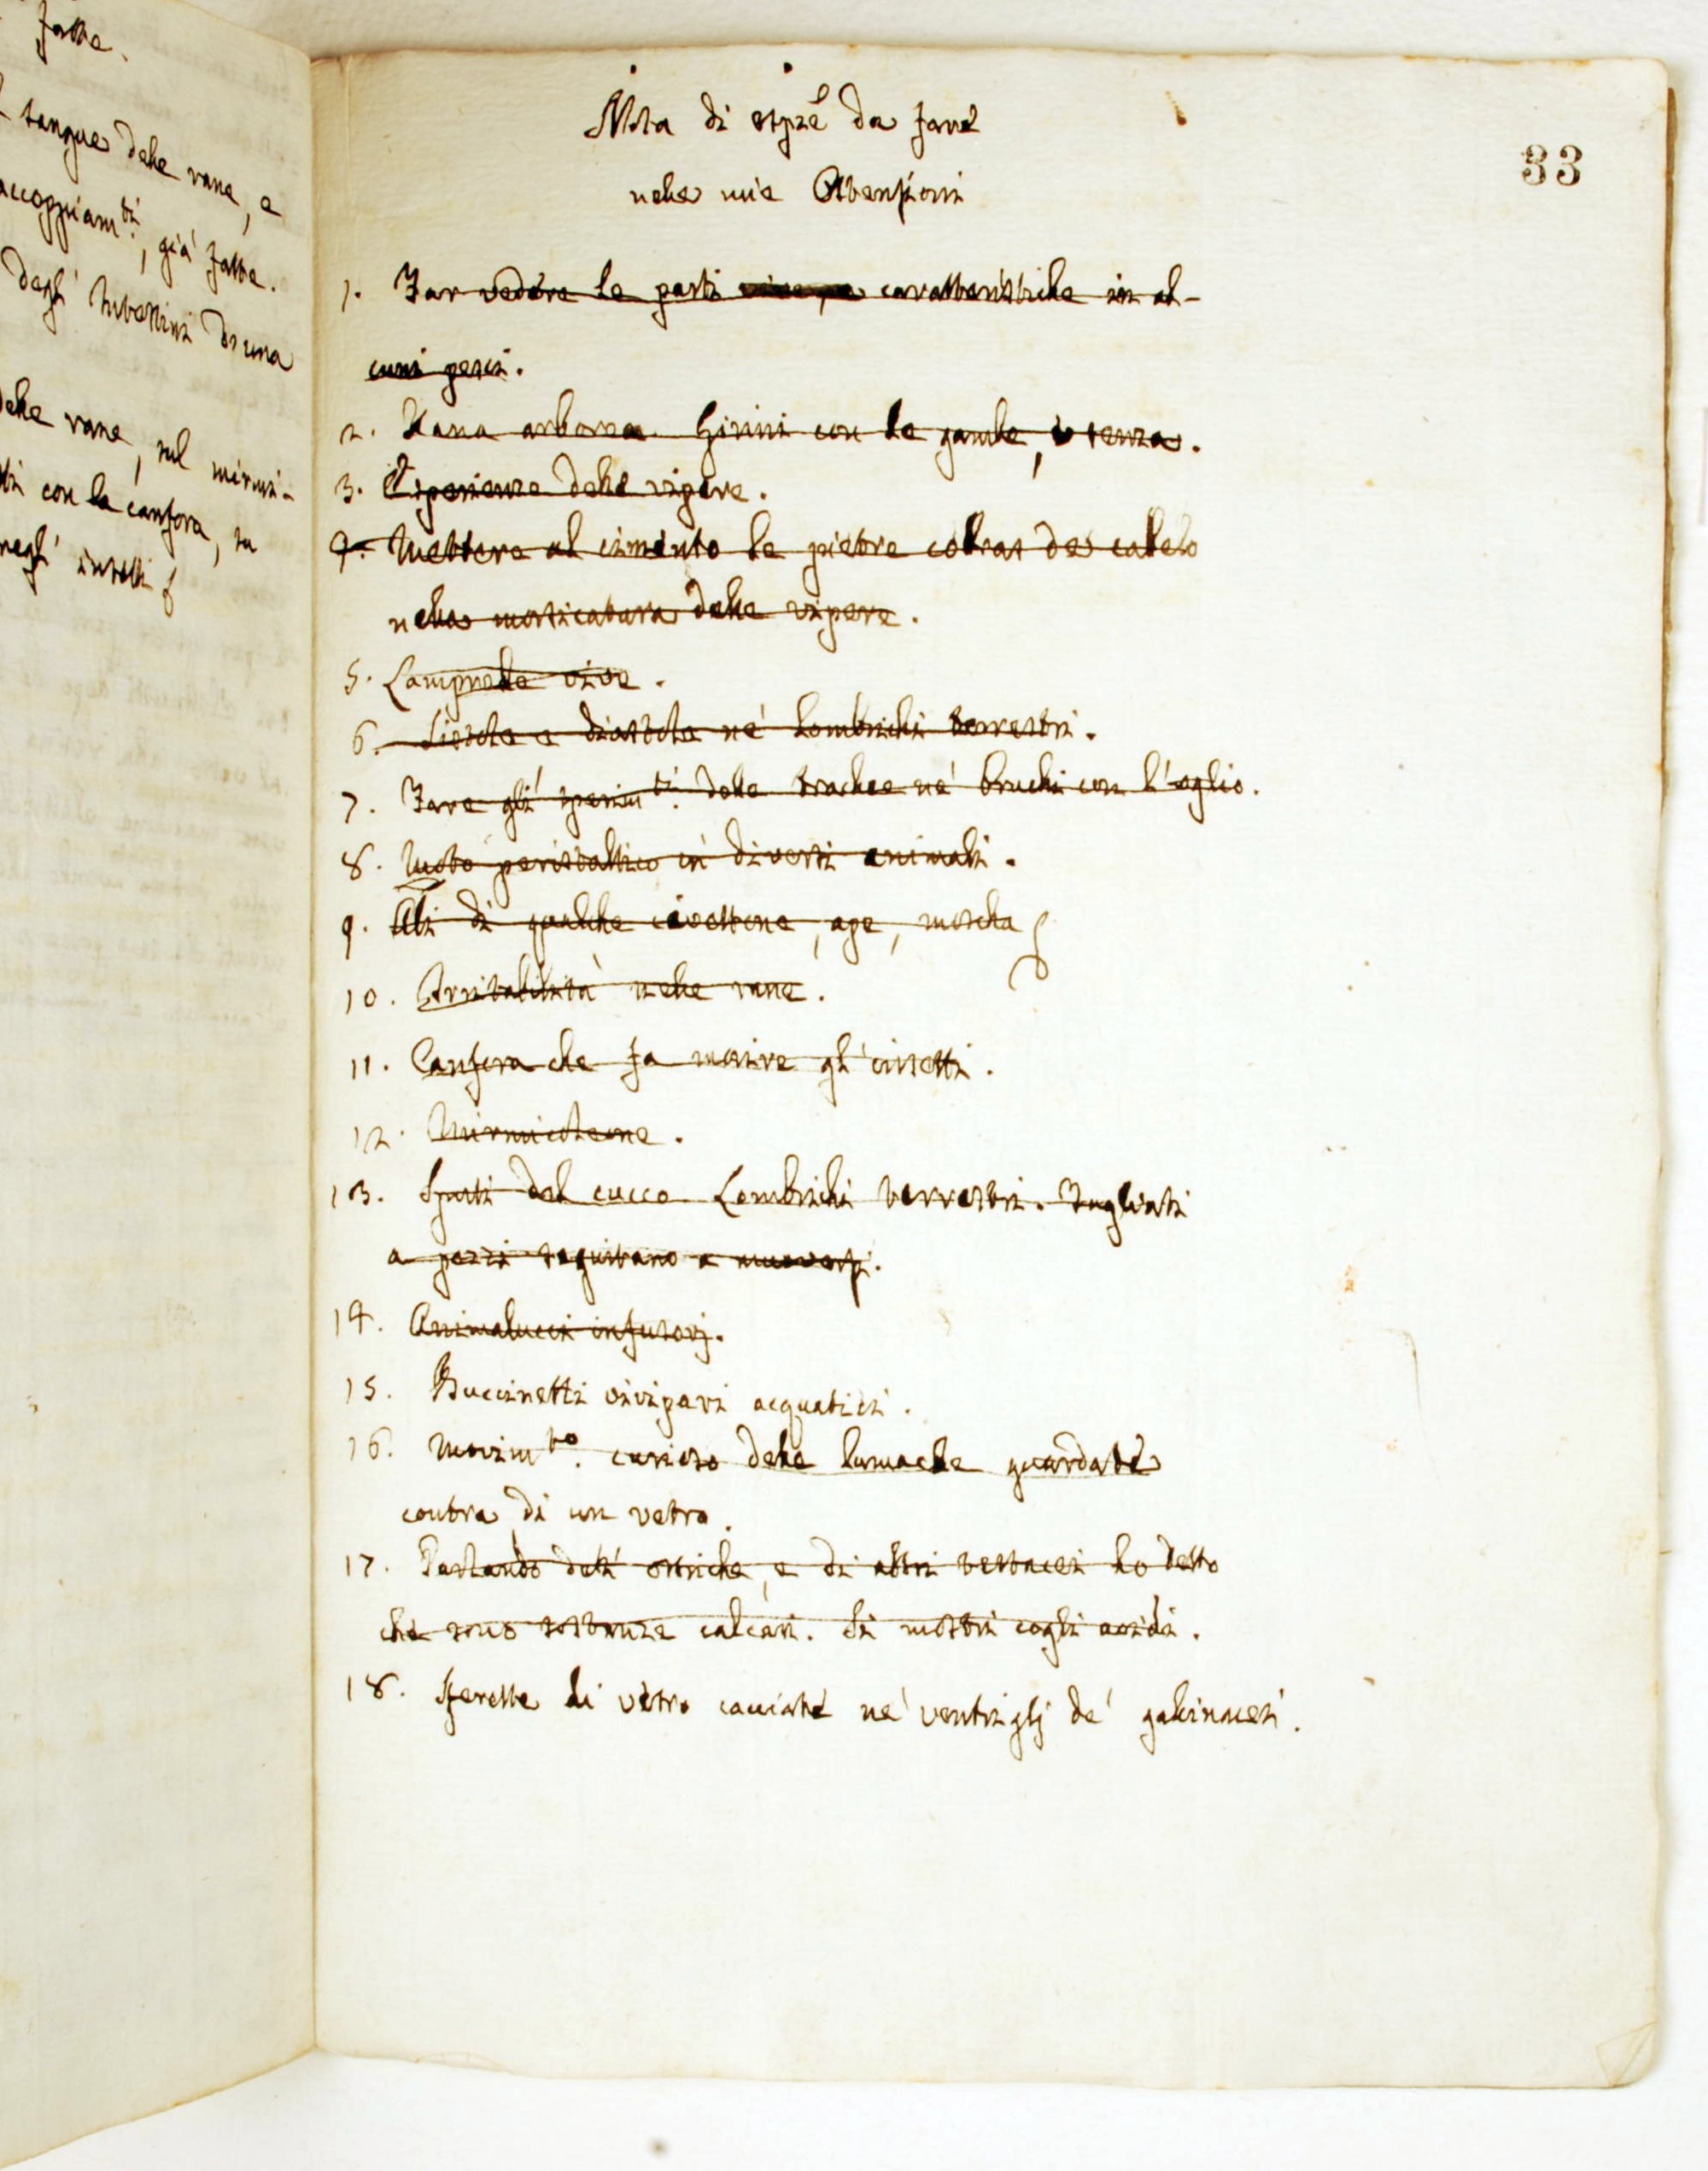 fatte.
sangue delle rane, e
accoppiam.ti, già fatte.
degl' Intestini di una
delle rane, sul mirmi-
con la canfora, su
negl' insetti
33
Nota di espze da farsi
nelle mie Ostensioni
1. Far vedere le parti caratteristiche in al-
cuni pesci.
2. Rana arborea. Girini con le gambe, e senza.
3. Esperienze delle vipere.
4. Mettere al cimento le pietre cobras de cabelo
nella morsicatura delle vipere.
5. Lamprede vive.
6. Sistole e diastole ne' lombrichi terrestri.
7. Fare gli sperim.ti delle trachee ne' bruchi con l'oglio.
8. Moto peristaltico in diversi animali.
9. Ali di qualche civettone, ape, mosca
10. Irritabilità nelle rane.
11. Canfora che fa morire gl' insetti.
12. Mirmicoleone.
13. Sputi del cucco. Lombrichi terrestri. Tagliati
a pezzi seguitano a muoversi.
14. Animalucci infusorj.
15. Buccinetti vivipari acquatici.
16. Movim.to curioso delle lumache guardate
contra di un vetro.
17. Parlando dell' ostriche, e di altri testacei ho detto
che sono sostanze calcari. Si mostri cogli acidi.
18. Sferette di vetro cacciate ne' ventriglj de' gallinacei.